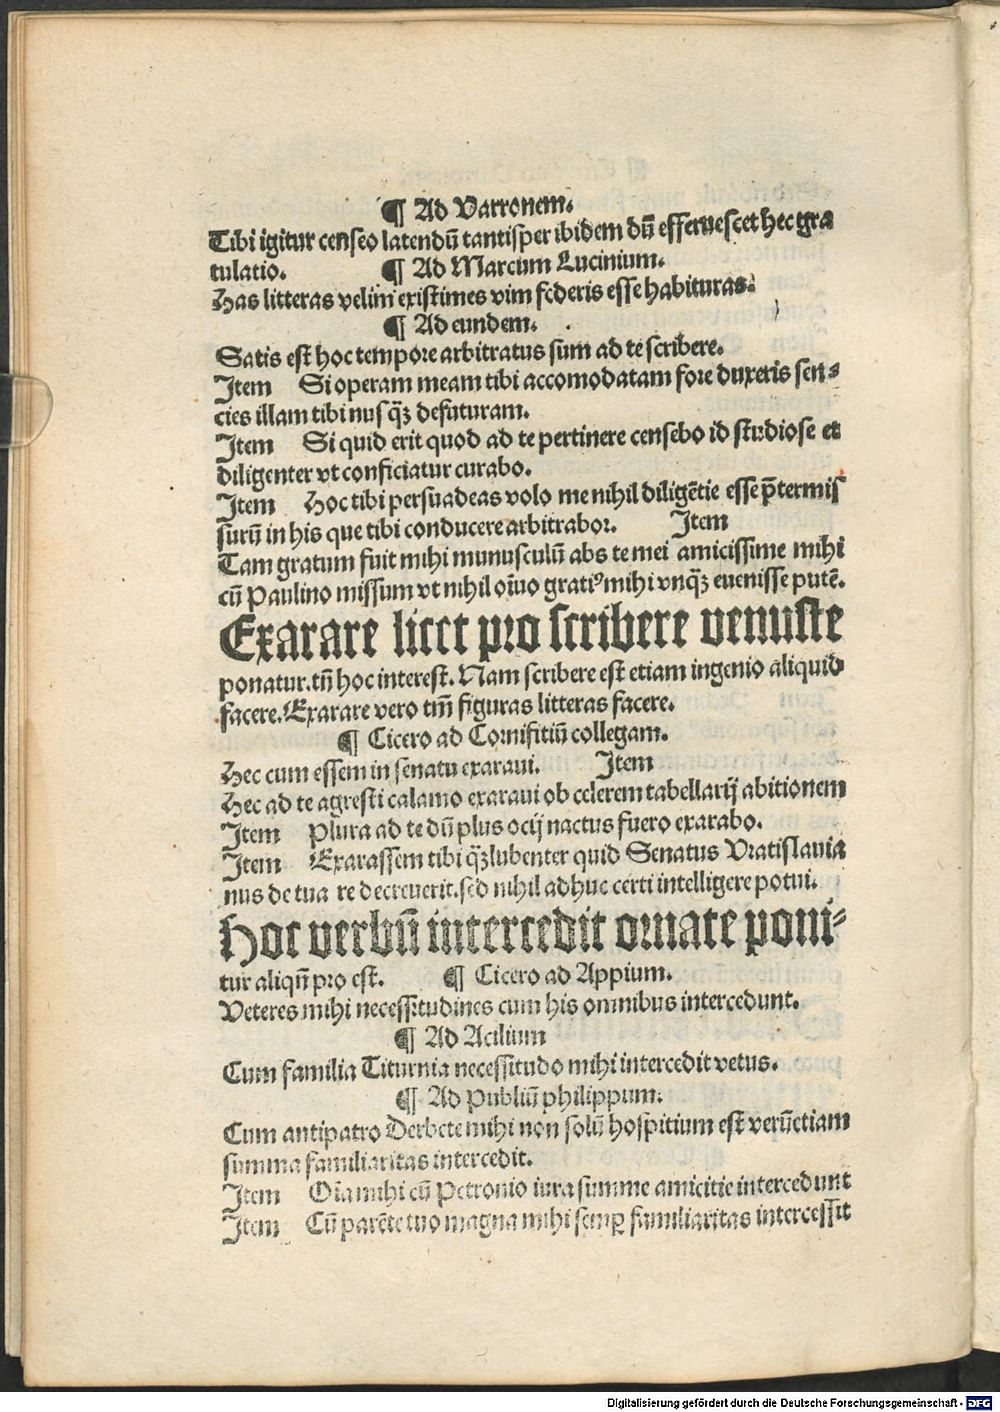 ¶ Ad Varronem.
Tibi igitur censeo latendū tantisper ibidem dū efferuescet hec gra
tulatio. ¶ Ad Marcum Lucinium.
Has litteras velim existimes vim federis esse habituras.
¶ Ad eundem.
Satis est hoc tempore arbitratus sum ad te scribere.
Item Si operam meam tibi accomodatam fore duxeris sen⸗
cies illam tibi nusqꝫ defuturam.
Item Si quid erit quod ad te pertinere censebo id studiose et
diligenter vt conficiatur curabo.
Item Hoc tibi persuadeas volo me nihil diligētie esse p̄termis
surū in his que tibi conducere arbitrabor. Item
Tam gratum fuit mihi munusculū abs te mei amicissime mihi
cū Paulino missum vt nihil oīuo gratiꝰ mihi vnqꝫ euenisse putē.
Exarare licet pro scribere venuste
ponatur. tn̄ hoc interest. Nam scribere est etiam ingenio aliquid
facere. Exarare vero tm̄ figuras litteras facere.
¶ Cicero ad Cornifitiū collegam.
Hec cum essem in senatu exaraui. Item
Hec ad te agresti calamo exaraui ob celerem tabellarij abitionem
Item Plura ad te dū plus ocij nactus fuero exarabo.
Item Exarassem tibi qꝫlubenter quid Senatus Vratislauia
nus de tua re decreuerit. sed nihil adhuc certi intelligere potui.
Hoc verbū intercedit ornate poni⸗
tur aliqn̄ pro est. ¶ Cicero ad Appium.
Veteres mihi necessitudines cum his omnibus intercedunt.
¶ Ad Acilium
Cum familia Titurnia necessitudo mihi intercedit vetus.
¶ Ad Publiū philippum.
Cum antipatro Derbete mihi non solū hospitium est verūetiam
summa familiaritas intercedit.
Item Oīa mihi cū Petronio iura summe amicitie intercedunt
Item Cū parēte tuo magna mihi semꝑ familiaritas intercessit
Digitalisierung gefördert durch die Deutsche Forschungsgemeinschaft - DFG